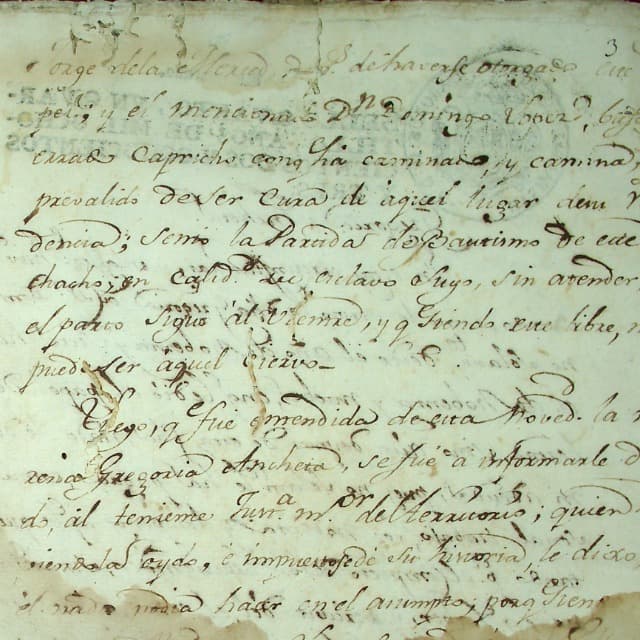 3
Jorge de la Merced de haverse otorgado
pel; y el mencionado Dn. Domingo Lopez, baxo
errado Capricho conq. há caminado, y camina
prevalido de ser Cura de aquel lugar de su
dencia; sentó la Partida de Bautismo de este
chacho, en calidd. de esclavo suyo, sin atender
el parto sigue al vientre, y q. siendo este libre, n
puede ser aquel siervo
Luego, q. fue entendida de esta Noved. la
rença Gregoria Ancheta, se fue a informarle
do, al teniente Justa. mor. del territorio; quien
viendola oydo, e impuesto de su historia, le dixo,
el nada podia hacer en el asumpto, porq. tien